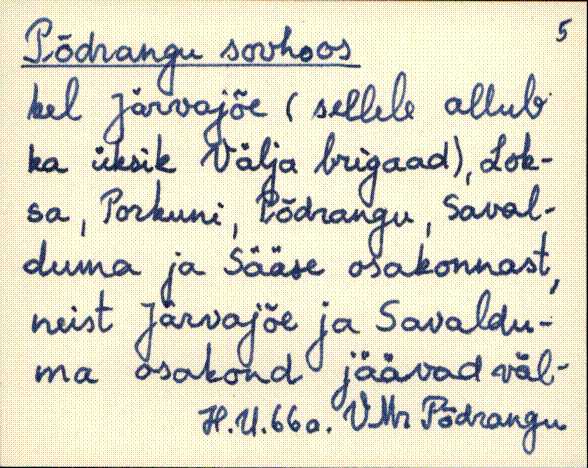 5
Põdrangu sovhoos
kel Järvajõe (sellele allub
ka üksik Välja brigaad), Lok-
sa, Porkuni, Põdrangu, Saval-
duma ja Sääse osakonnast,
neist Järvajõe ja Savaldu-
ma osakond jäävad väl-
H.U. 66 a. VMr Põdrangu